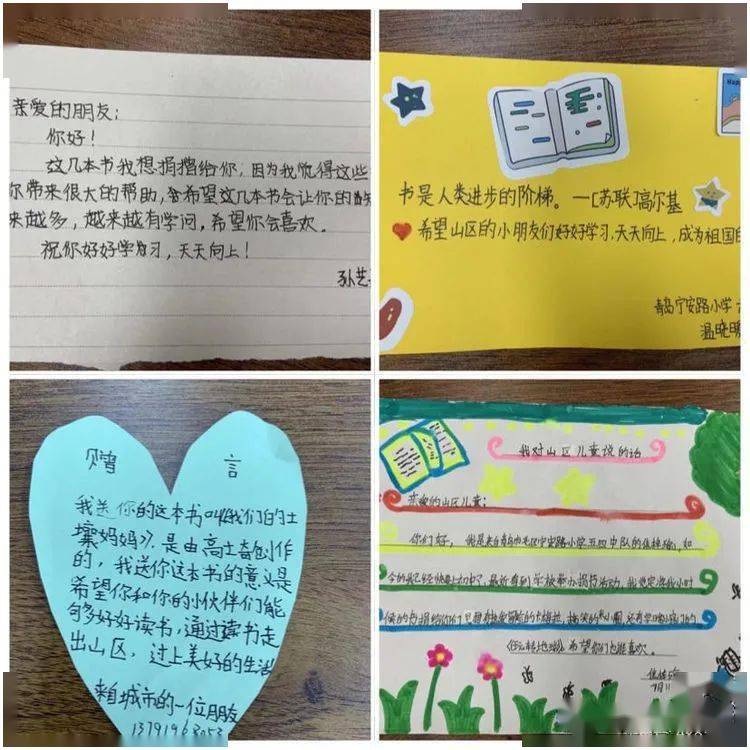 亲爱的朋友：
你好！
这几本书我想捐赠给你，因为我觉得这些
你带来很大的帮助，希望这几本书会让你的
来越多，越来越有学问，希望你会喜欢。
祝你好好学习，天天向上！
孙艺
书是人类进步的阶梯。—[苏联]高尔基
希望山区的小朋友们好好学习，天天向上，成为祖国的
青岛宁安路小学
温晓明
赠言
我送你的这本书叫《我们的土
壤妈妈》，是由高士奇创作
的，我送你这本书的意义是
希望你和你的小伙伴们能
够好好读书，通过读书走
出山区，过上美好的生活
来自城市的一位朋友
我对山区儿童说的话
亲爱的山区儿童：
你们好，我是来自青岛市宁安路小学五四中队的
今的我已经快要上初中了，最近看到学校举办捐书活动，我决定将我小时
候的书捐给你们
希望你们也能喜欢。